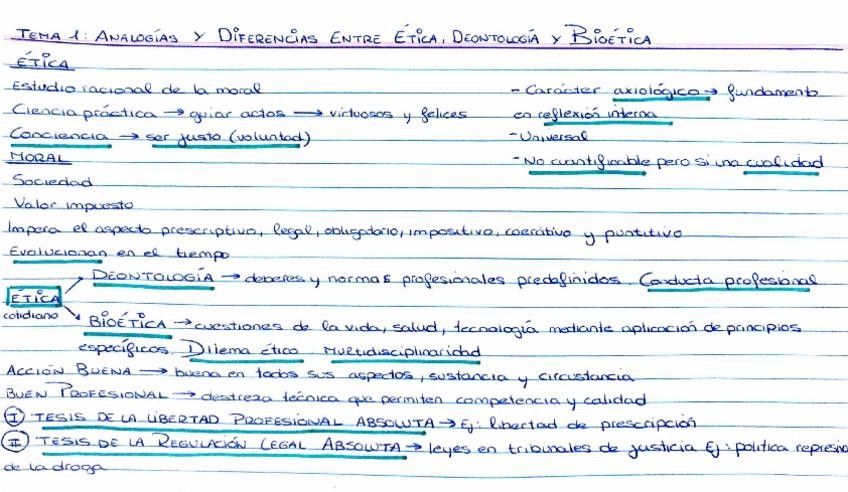 TEMA 1: ANALOGÍAS Y DIFERENCIAS ENTRE ÉTICA, DEONTOLOGÍA Y BIOÉTICA
ÉTICA
Estudio racional de la moral
- Carácter axiológico → fundamento
Ciencia práctica → guiar actos → virtuosos y felices
en reflexión interna
Conciencia → ser justo (voluntad)
- Universal
MORAL
- No cuantificable pero si una cualidad
Sociedad
Valor impuesto
Impera el aspecto prescriptivo, legal, obligatorio, impositivo, coercitivo y puntitivo
Evolucionan en el tiempo
DEONTOLOGÍA → deberes y normas profesionales predefinidos. Conducta profesional
ÉTICA
cotidiano
BIOÉTICA → cuestiones de la vida, salud, tecnología mediante aplicación de principios
específicos. Dilema ético. Multidisciplinaridad
ACCIÓN BUENA → buena en todos sus aspectos, sustancia y circustancia
BUEN PROFESIONAL → destreza técnica que permiten competencia y calidad
I TESIS DE LA LIBERTAD PROFESIONAL ABSOLUTA → Ej: libertad de prescripción
II TESIS DE LA REGULACIÓN LEGAL ABSOLUTA → leyes en tribunales de justicia Ej: política represiva
de la droga